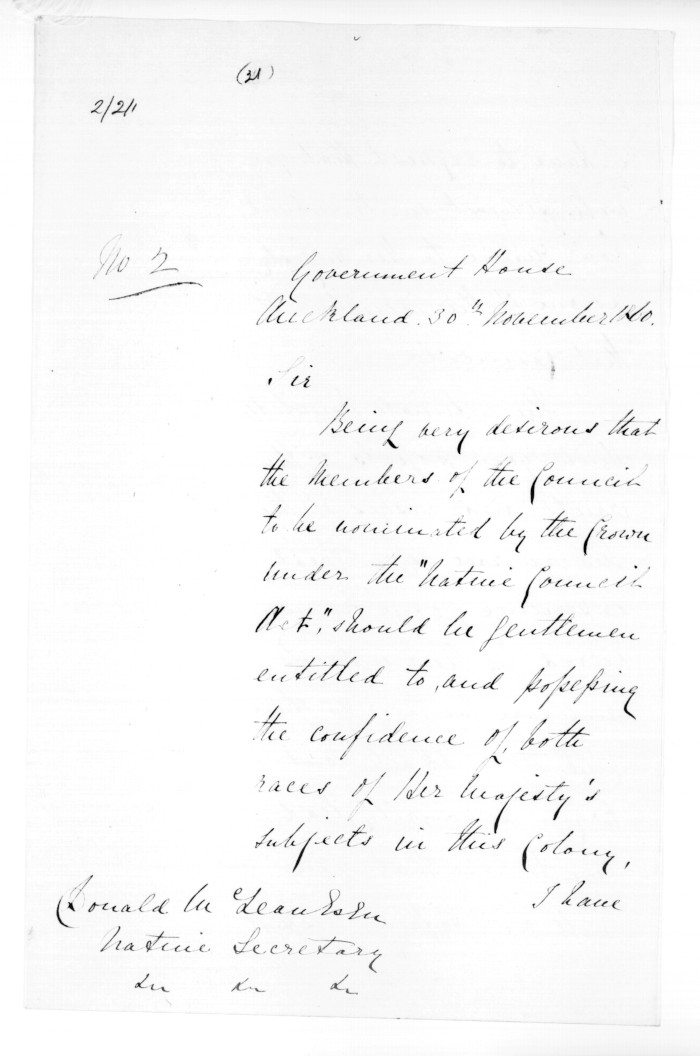 (21)
2/21
No 2
Government House
Auckland. 30th November 1860.
Sir
Being very desirous that
the Members of the Council
to be nominated by the Crown
under the "Native Council
Act", should be gentlemen
entitled to, and possessing
the confidence of, both
races of Her Majesty's
subjects in this Colony,
I have
Donald McLean Esqr
Native Secretary
&c &c &c